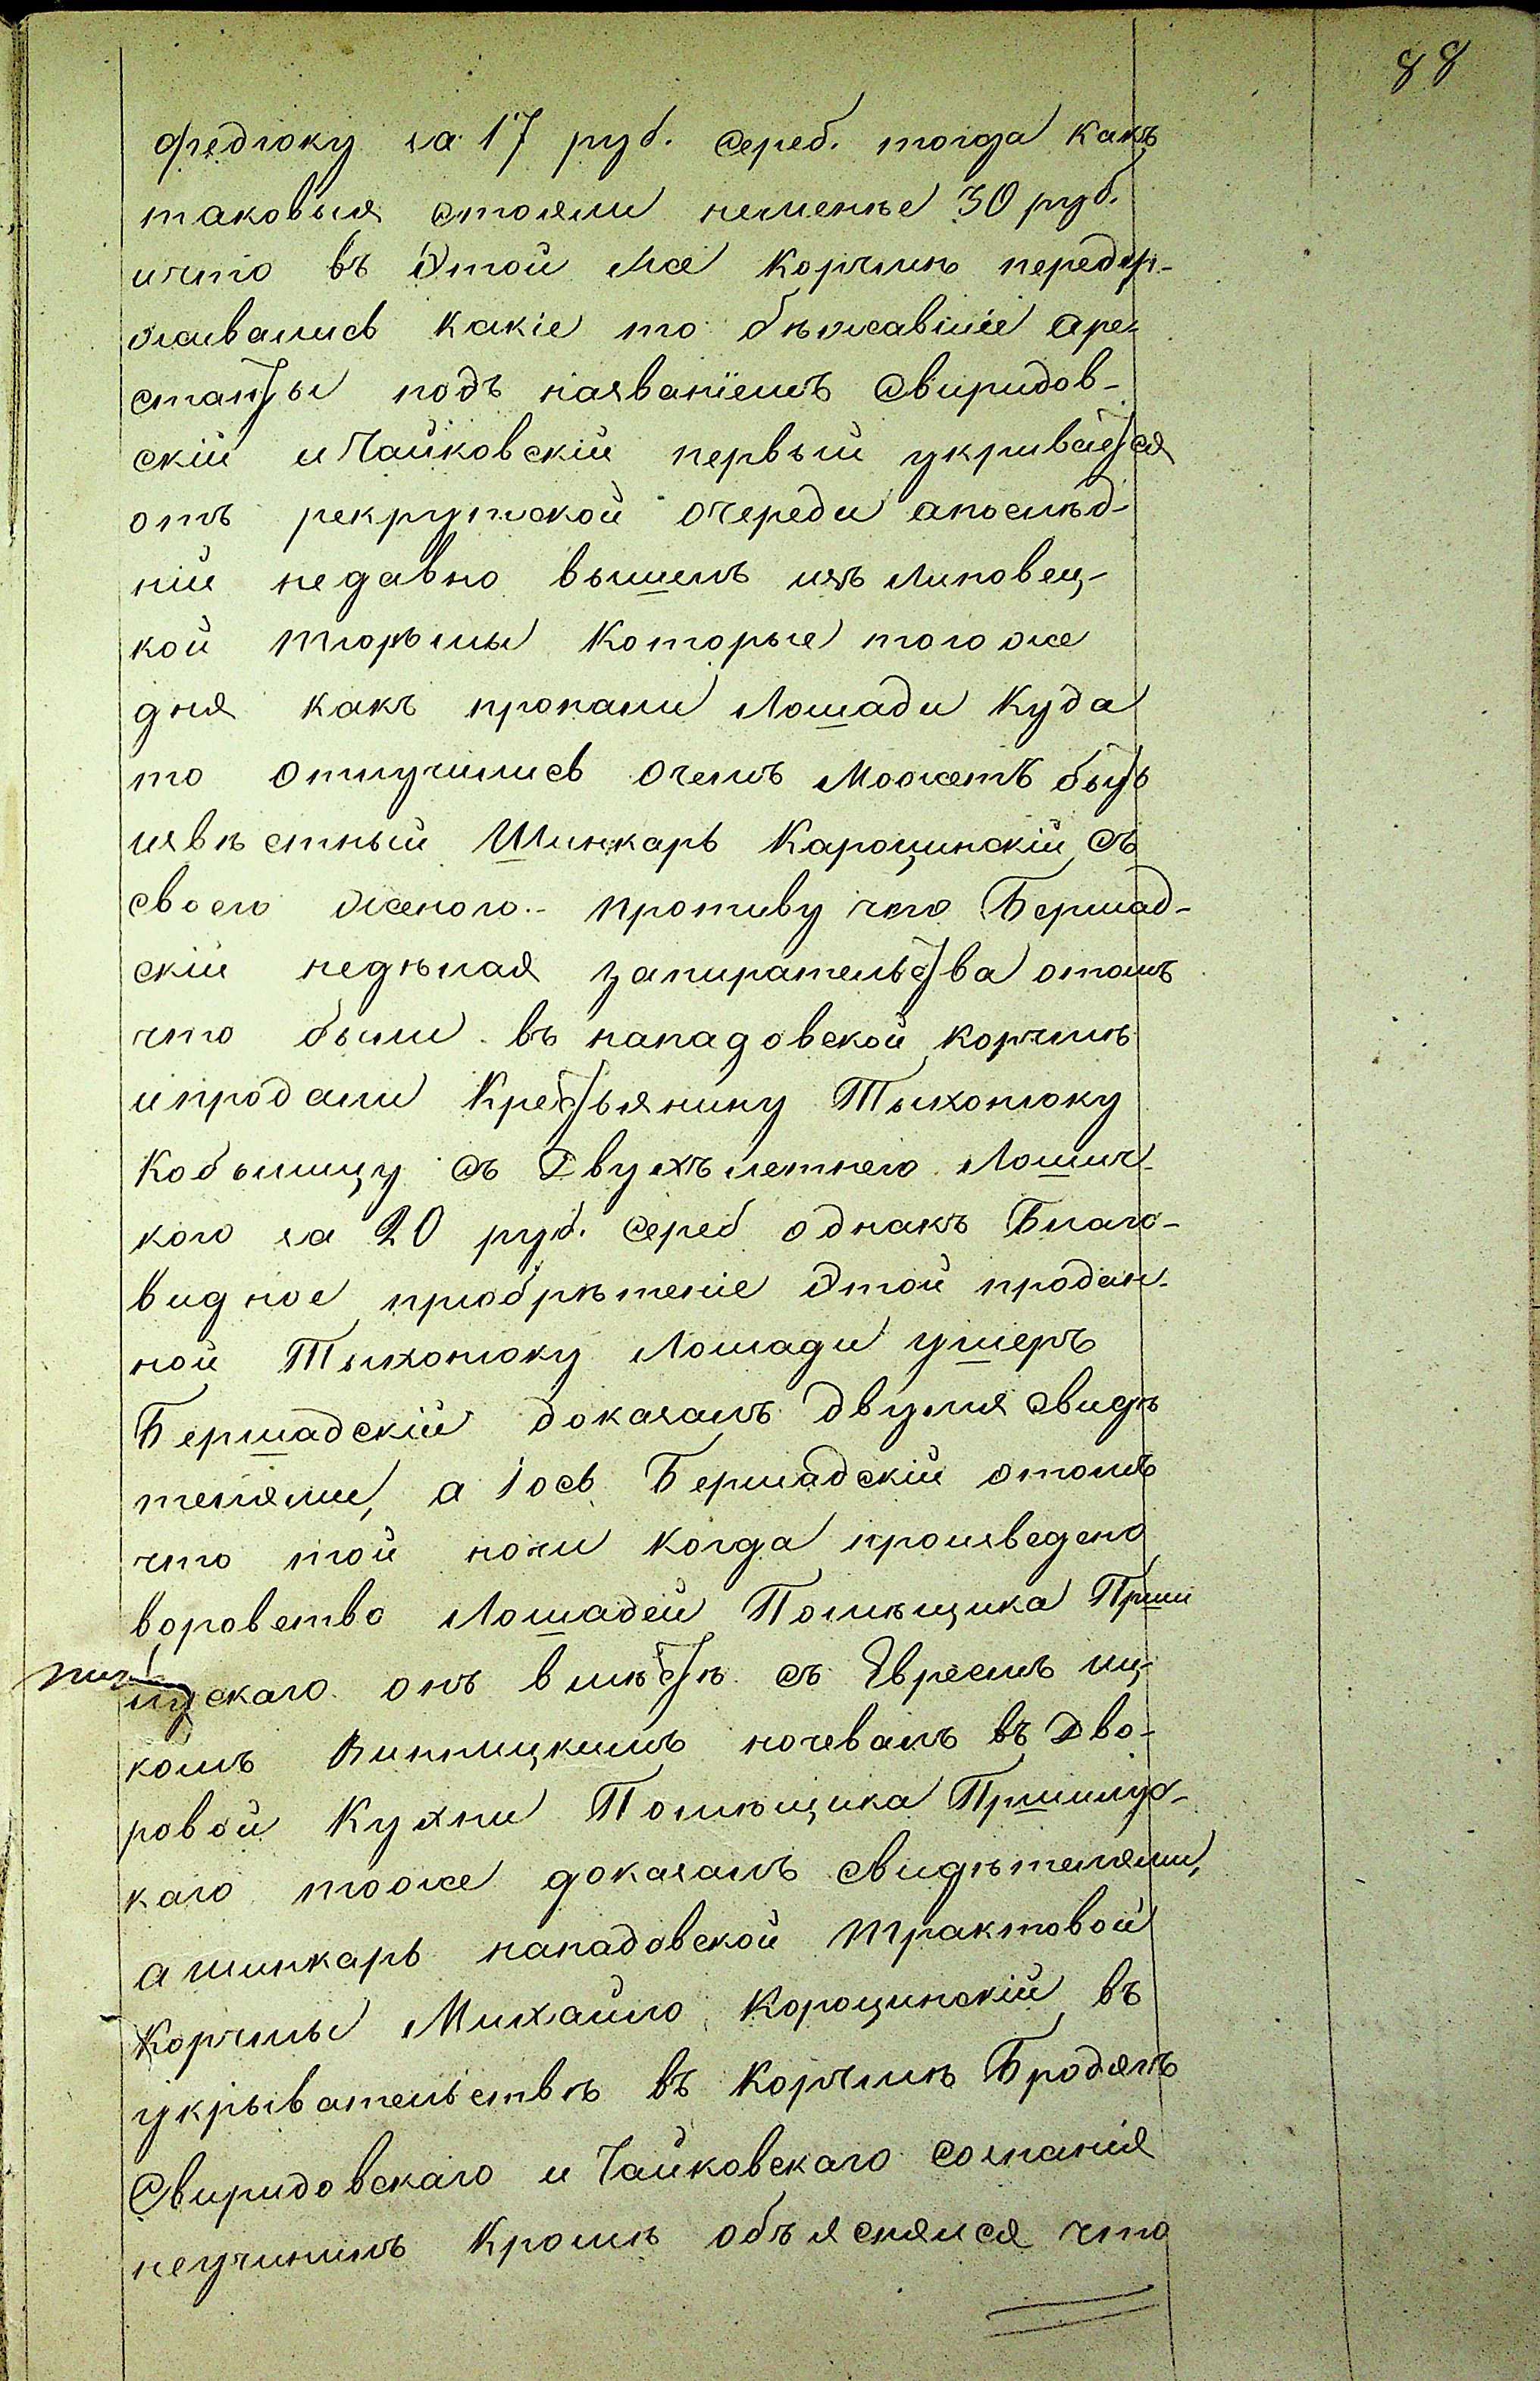 88
Федюку за 17 руб. сереб. тогда какъ
таковыя стояли неменѣе 30 руб.
ичто въ Этой же корчмѣ передер-
живались какіе то бѣжавшіе аре-
станты подъ названіемъ Свиридов-
скій и Чайковскій первый укривается
отъ рекрутской очереди апослѣд-
ній недавно вышелъ изъ Липовец-
кой тюрьмы которые того же
дня какъ пропали Лошади куда
то отлучились очемъ можетъ быть
извѣстный Шинкарь Карощинскій съ
своею женою.- противу чего Бершад-
скій недѣлая запирательства отомъ
что были въ нападовской корчмѣ
ипродали Крестьянину Тыхонюку
Кобылицу съ Двухълетнего Лошич-
кого за 20 руб. сереб однакъ Благо-
видное приобрѣтеніе Этой продан-
ной Тыхонюку Лошади Ушеръ
Бершадскій доказалъ двумя свидѣ
телями, а Іось Бершадскій отомъ
что той ночи когда произведено
воровство Лошадей Помѣщика Пржи
луцскаго онъ вмѣстѣ съ Евреемъ Иц-
комъ Винницкимъ ночевалъ въ Дво-
ровой Кухни Помѣщика Пржилуд-
каго тоже доказалъ свидѣтелями,
а шинкарь нападовской трактовой
Корчмы Михайло Корощинскій въ
укрывательствѣ въ Корчмѣ Бродягъ
Свиридовскаго и Чайковскаго сознанія
неучинилъ Кромѣ объяснялся что